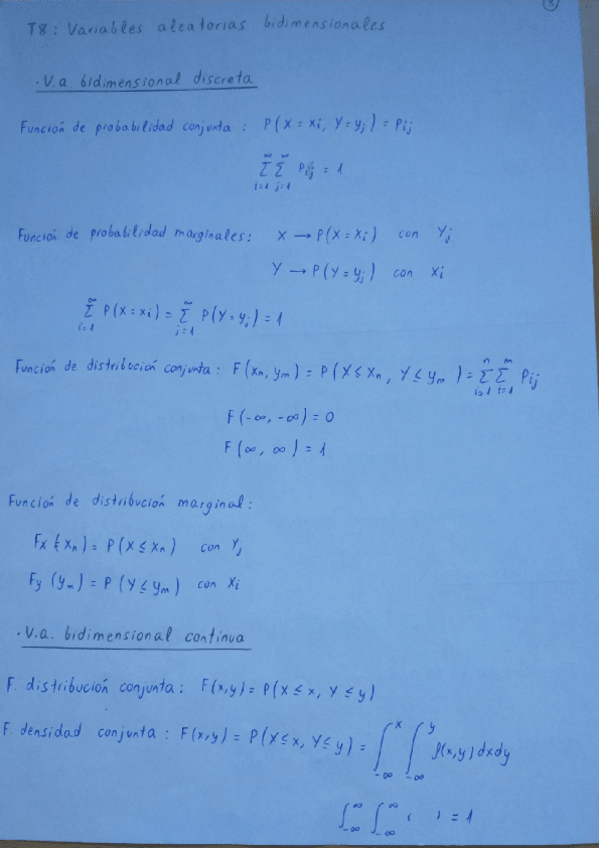 8
T8: Variables aleatorias bidimensionales
· V.a. bidimensional discreta
Función de probabilidad conjunta : P(X = xi, Y = yj) = Pij
∞Σi=1 ∞Σj=1 Pij = 1
Función de probabilidad marginales: X → P(X = xi) con Yj
Y → P(Y = yj) con Xi
∞Σi=1 P(X = xi) = ∞Σj=1 P(Y = yj) = 1
Función de distribución conjunta : F(xn, ym) = P(X ≤ xn, Y ≤ ym) = nΣi=1 mΣi=1 Pij
F(-∞, -∞) = 0
F(∞, ∞) = 1
Función de distribución marginal:
Fx(xn) = P(X ≤ xn) con Yj
Fy(ym) = P(Y ≤ ym) con Xi
· V.a. bidimensional continua
F. distribución conjunta: F(x,y) = P(X ≤ x, Y ≤ y)
F. densidad conjunta : F(x,y) = P(X ≤ x, Y ≤ y) = ∫-∞x ∫-∞y f(x,y) dxdy
∫-∞∞ ∫-∞∞ ( ) = 1